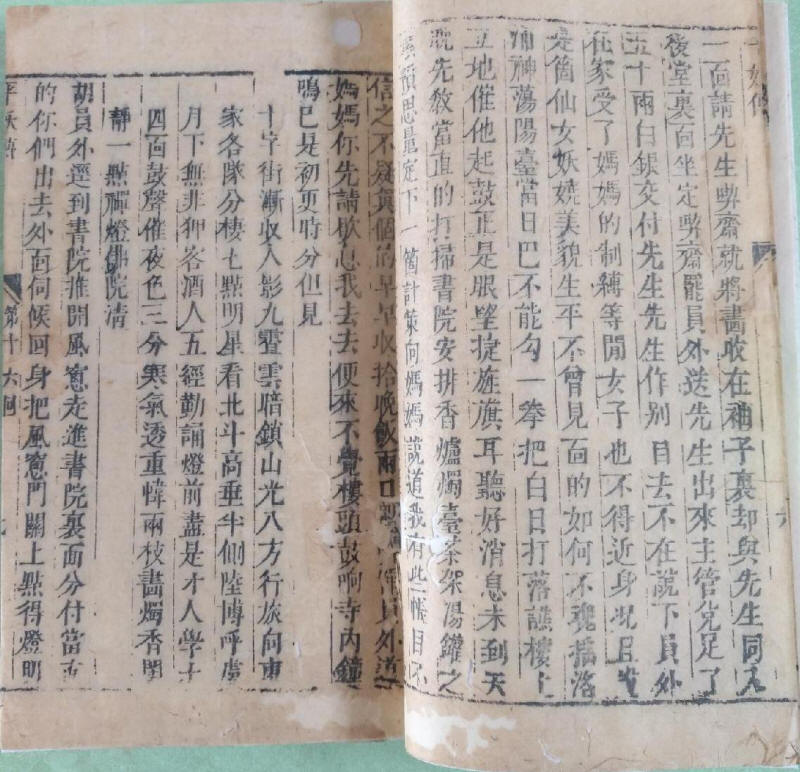 一面請先生與齋就將畵收在袖子裏却與先生同入
後堂裏面坐定與齋罷員外送先生出來主管兌足了
五十兩白銀交付先生先生作别自去不在話下員外
在家受了媽媽的制縛等閒女子也不得近身況且
是箇仙女妖嬈美貌生平不曾見面的如何不魂揺
神蕩陽臺當日巴不能勾一拳把白日打落譙樓上
立地催他起鼓正是眼望旌旗耳聽好消息未到天
先教當直的打掃書院安排香爐燭臺茶架湯鑵之
預思量定下一箇計策向媽媽說道我有些帳目不
信之不疑眞個的早早收拾晚飯兩口員外道
媽媽你先請歇息我去去便來不覺樓頭鼓响寺内鐘
鳴已是初更時分但見
十字街漸收人影九霄雲暗鎖山光八方行旅向東
家各隊分棲七點明星看北斗高垂半側陸博呼盧
月下無非狎客酒人五經勤誦燈前盡是才人學士
四面鼓聲催夜色三分寒氣透重幃兩枝畵燭香閨
靜一點禪燈佛院清
胡員外逕到書院推開風窻走進書院裏面分付當直
的你們出去外面伺候回身把風窻門關上點得燈明
平妖傳
第十六囘